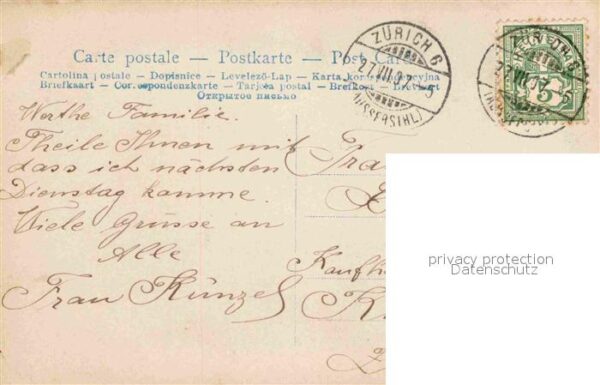 Carte postale — Postkarte — Post Card
Cartolina postale — Dopisnice — Levelező-Lap — Karta korespondencyjna
Briefkaart — Correspondenzkarte — Tarjeta postal — Brefkort — Brevkort
Открытое письмо
ZÜRICH 6
(AUSSERSIHL)
Werthe Familie.
Theile Ihnen mit
dass ich nächsten
Dienstag komme.
Viele Grüsse an
Alle
Frau Künzel
Kaufh
privacy protection
Datenschutz